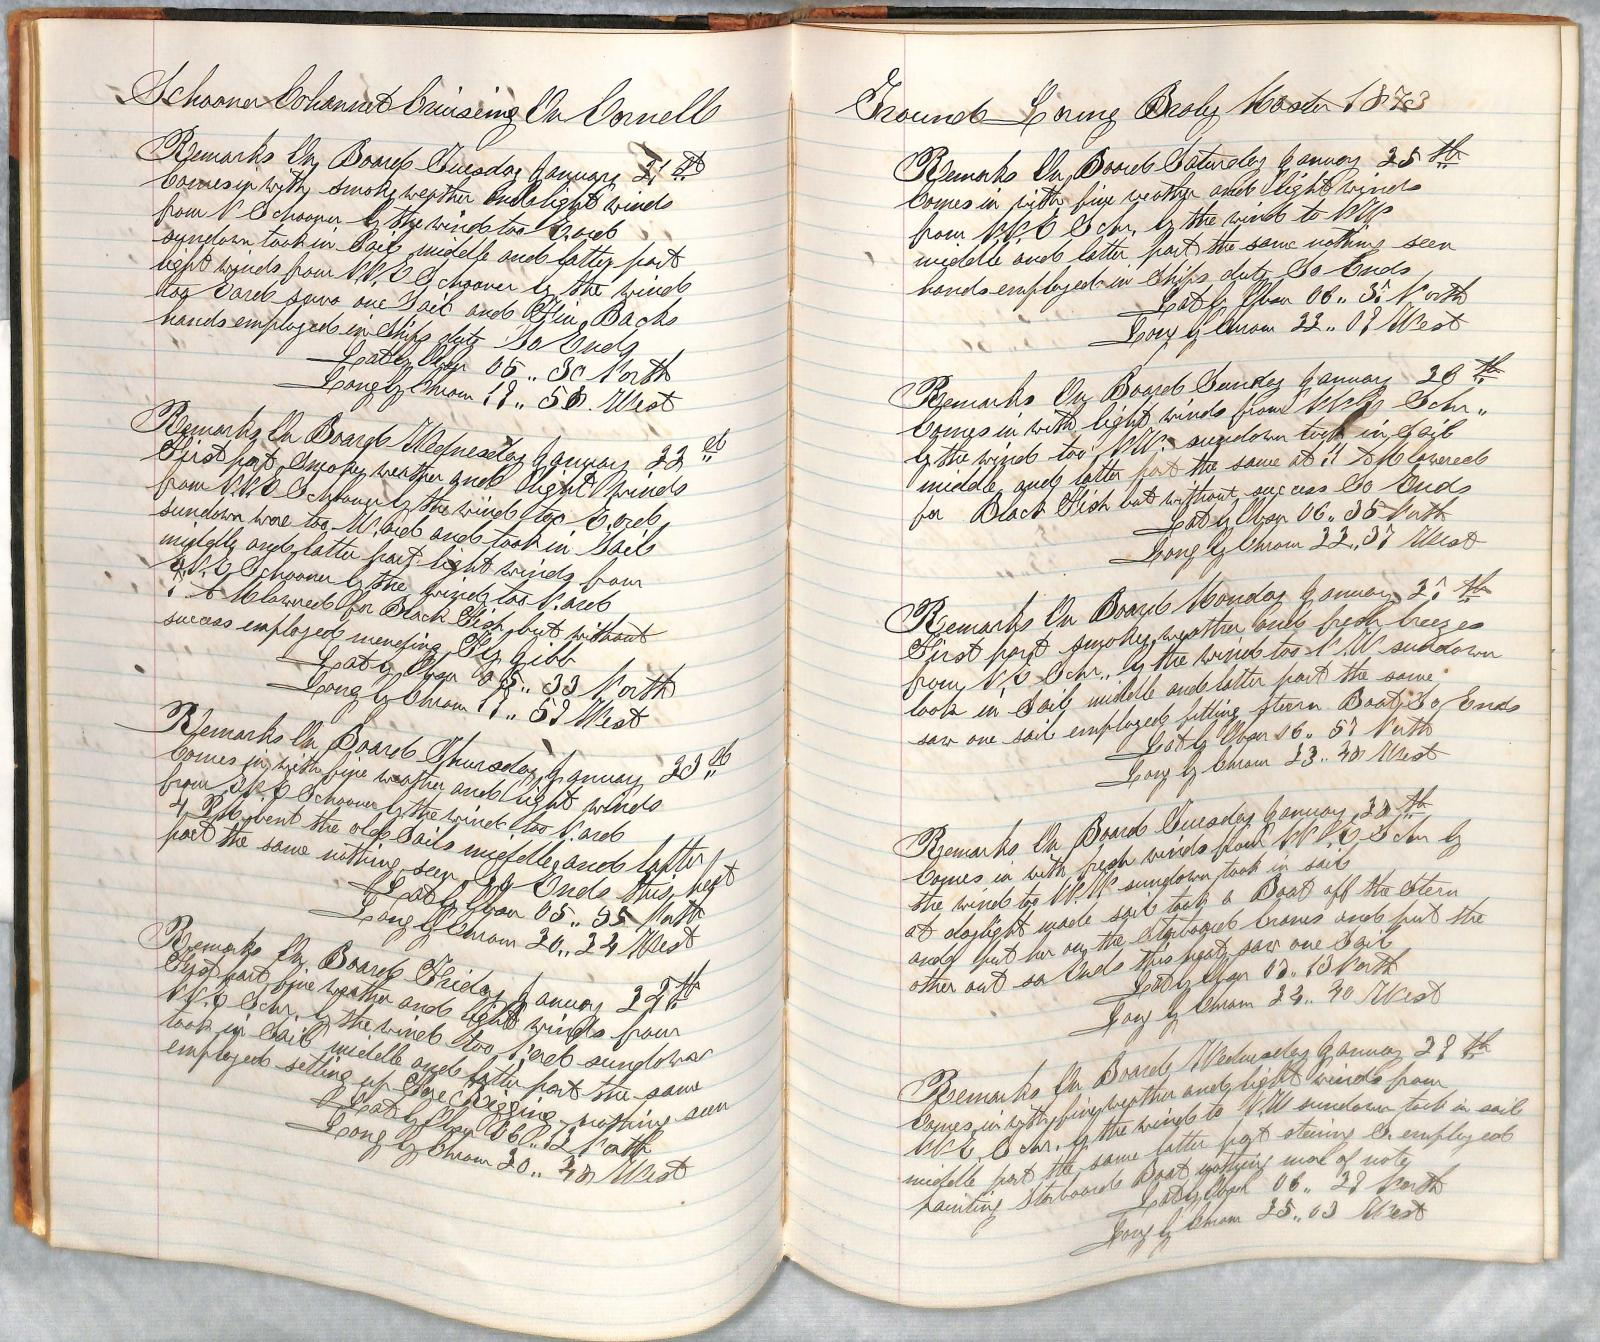 Schooner Cohannet Cruising On Cornell
Remarks On Board Tuesday January 21 st
Comes in with smoky weather and light winds
from N Schooner by the wind too E.ard
sundown took in Sail middle and latter part
light winds from N.N.E Schooner by the wind
too E ard saw one Sail and Fin Backs
hands employed in Ships duty So Ends
Lat by Obser 05 .. 30 North
Long by Chrom 19 .. 58 West
Remarks On Board Wednesday January 22 ed
First part Smoky weather and light winds
from N.N.E Schooner by the wind too E.ard
sundown wore too N.ard and took in Sail
middle and latter part light winds from
N.E Schooner by the wind too N.ard
A M lowred for Black Fish but without
success employed mending Fly Gibb
Lat by Obser 05 .. 33 North
Long by Chrom 19 .. 59 West
Remarks On Board Thursday January 23 ed
Comes in with fine weather and light winds
from N.E Schooner by the wind too N.ard
4 P M bent the old Sails middle and latter
part the same nothing seen So Ends this part
Lat by Obser 05 .. 55 North
Long by Chrom 20 .. 22 West
Remarks On Board Friday January 24 th
First part fine weather and light winds from
N.E Schr. by the wind too N.ard sundown
took in Sail middle and latter part the same
employed setting up Fore Rigging nothing seen
Lat by Obser 06 .. 12 North
Long by Chrom 20 .. 40 West
Ground Loring Braly Master 1873
Remarks On Board Saturday January 25 th
Comes in with fine weather and light winds
from N.E Schr. by the wind to NW
middle and latter part the same nothing seen
hands employed in Ships duty So Ends
Lat by Obser 06 .. 37 North
Long by Chrom 22 .. 09 West
Remarks On Board Sunday January 26 th
Comes in with light winds from N.N.E Schr ..
by the wind too N.W. sundown took in Sail
middle and latter part the same at 7 A M lowered
for Black Fish but without success So Ends
Lat by Obser 06 .. 35 North
Long by Chrom 22 .. 37 West
Remarks On Board Monday January 27 th
First part smoky weather and fresh breezes
from N.E Schr .. by the wind too N W sundown
took in Sail middle and latter part the same
saw one sail employed fitting stern Boat So Ends
Lat by Obser 06 .. 57 North
Long by Chrom 23 .. 40 West
Remarks On Board Tuesday January 28 th
Comes in with fresh winds from N.N.E Schr by
the wind to N.W sundown took in sail
at daylight made sail took a Boat off the Stern
and put her on the Starboard Cranes and put the
other out so Ends this part saw one Sail
Lat by Obser 07 .. 13 North
Long by Chrom 24 .. 40 West
Remarks On Board Wednesday January 29 th
Comes in with fine weather and light winds from
N.E. Schr. by the wind to N.W sundown took in sail
middle part the same latter part stering S. employed
painting Starboard Boat nothing more of note
Lat by Obser 06 .. 29 North
Long by Chrom 25 .. 03 West